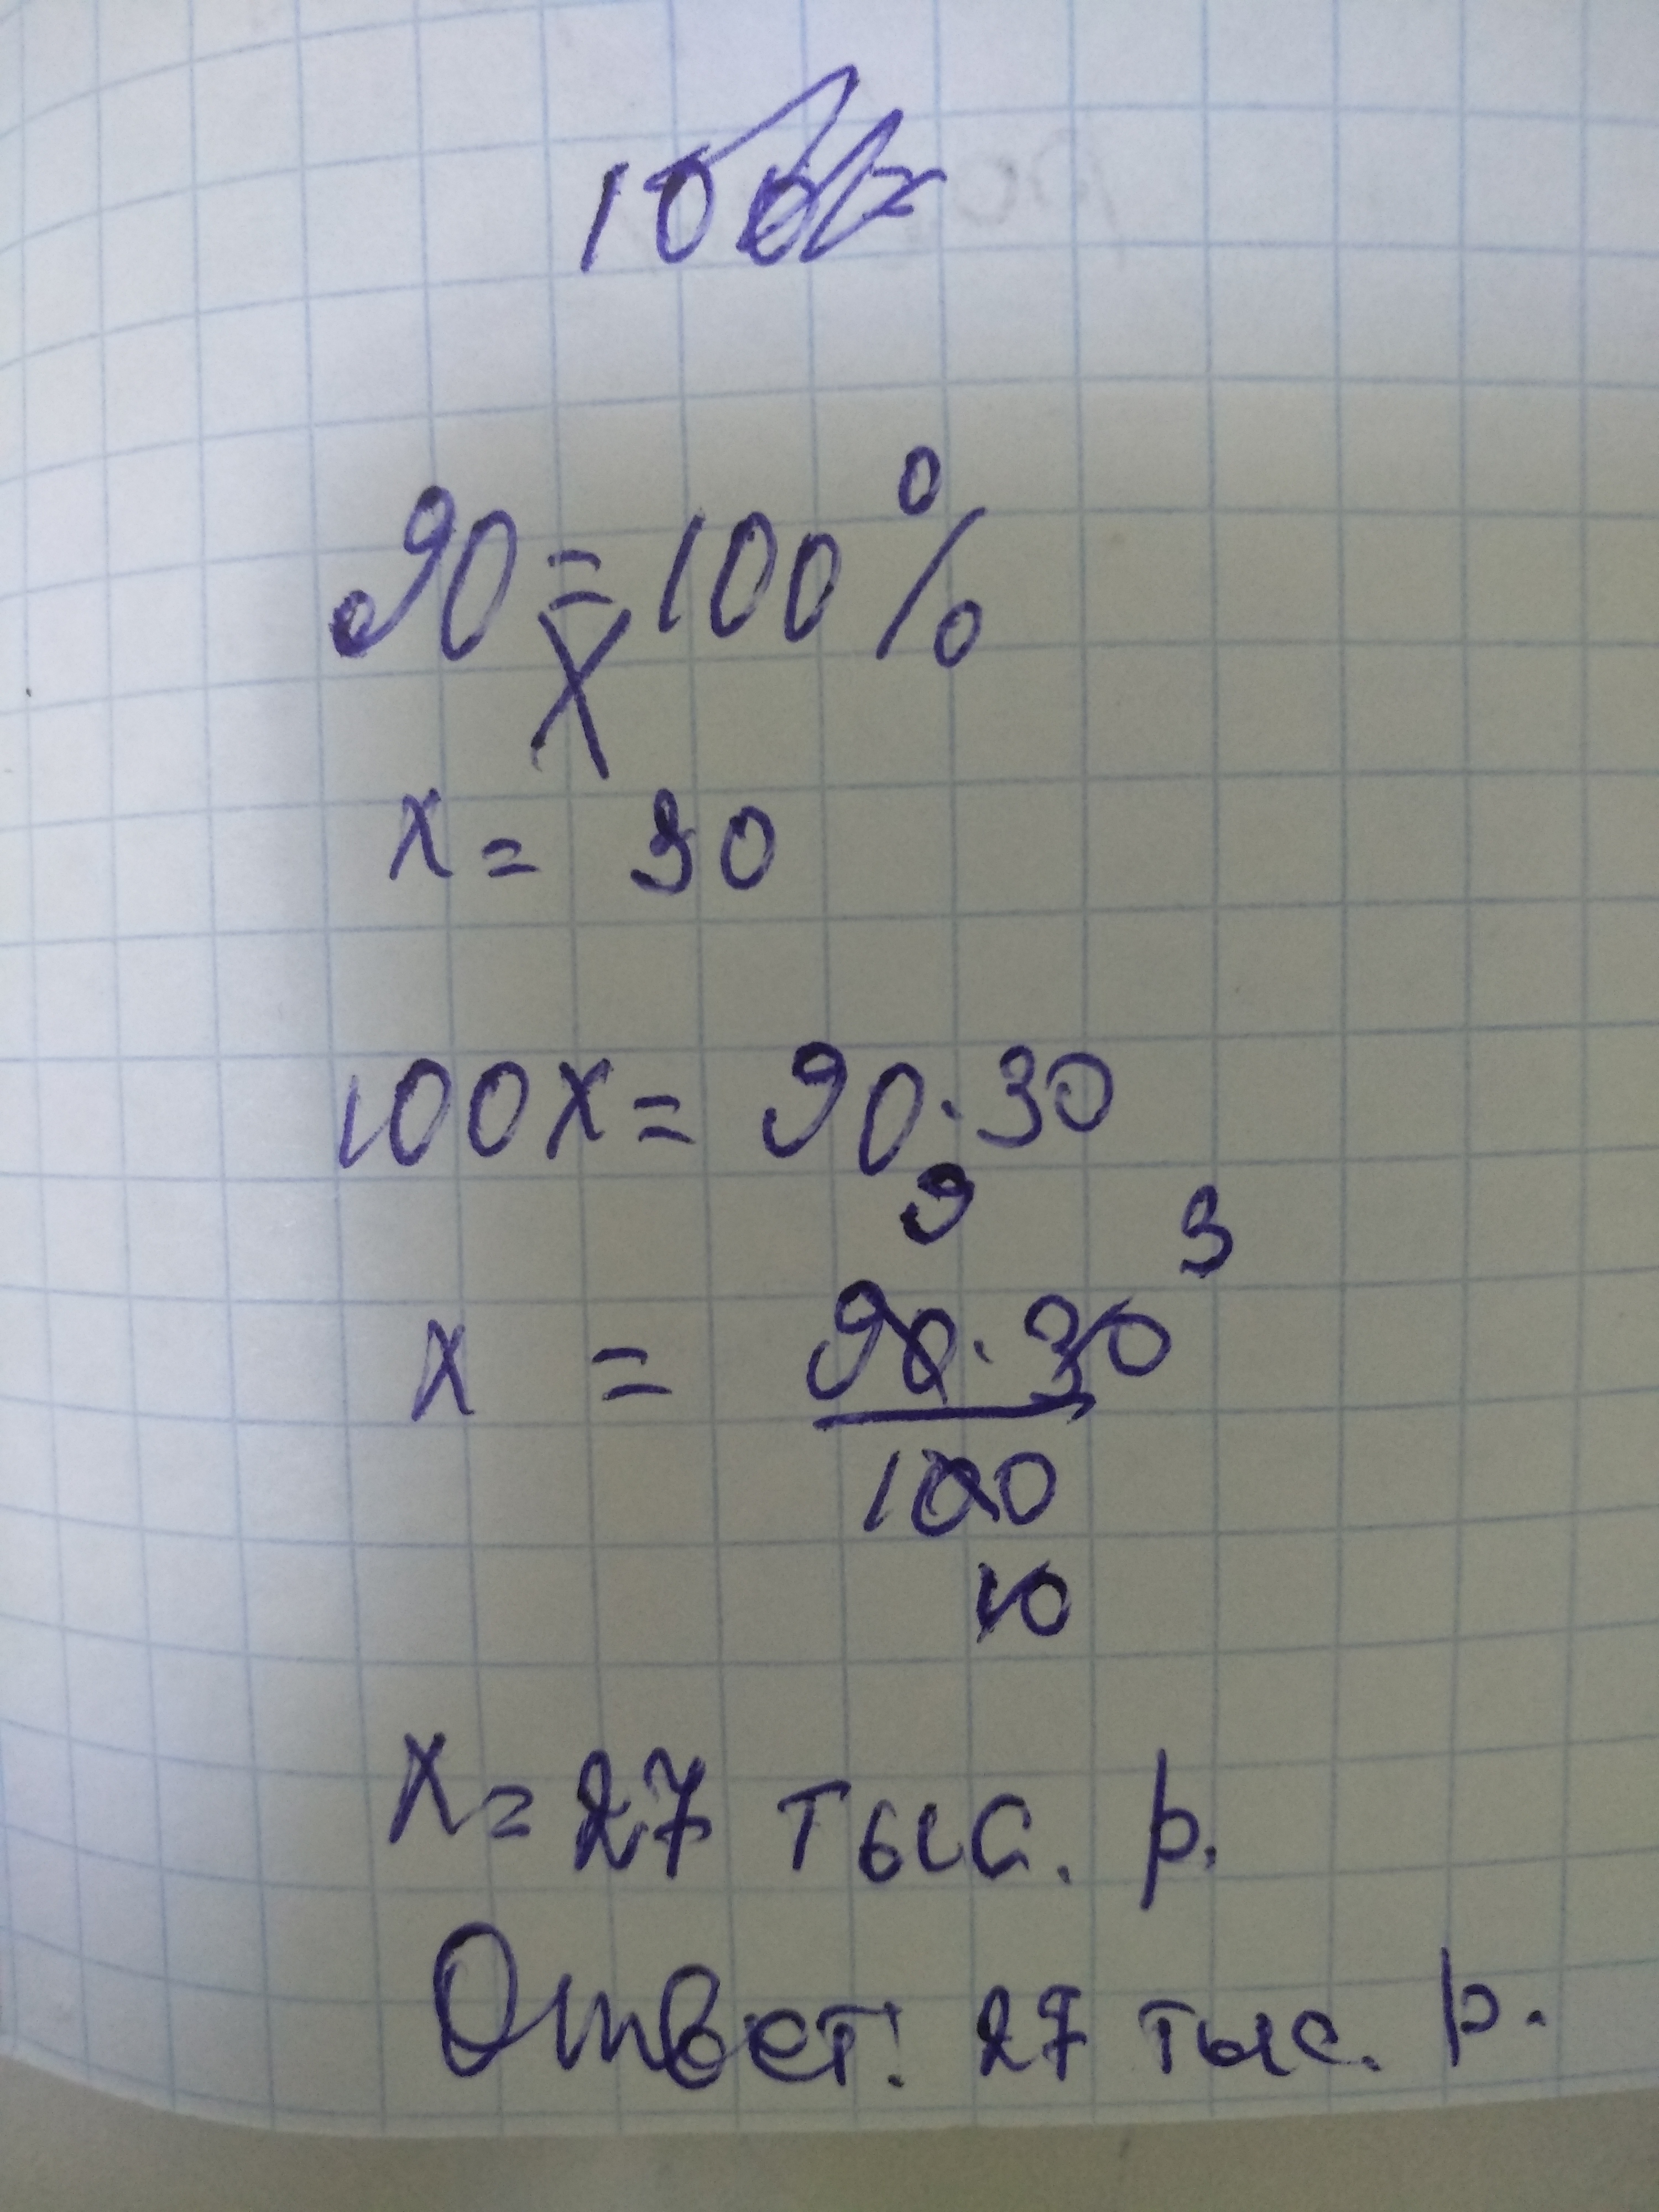 90 = 100%
X
x = 30
100x = 90·30
9 3
x = 90·30
100
10
x = 27 тыс. р.
Ответ: 27 тыс. р.